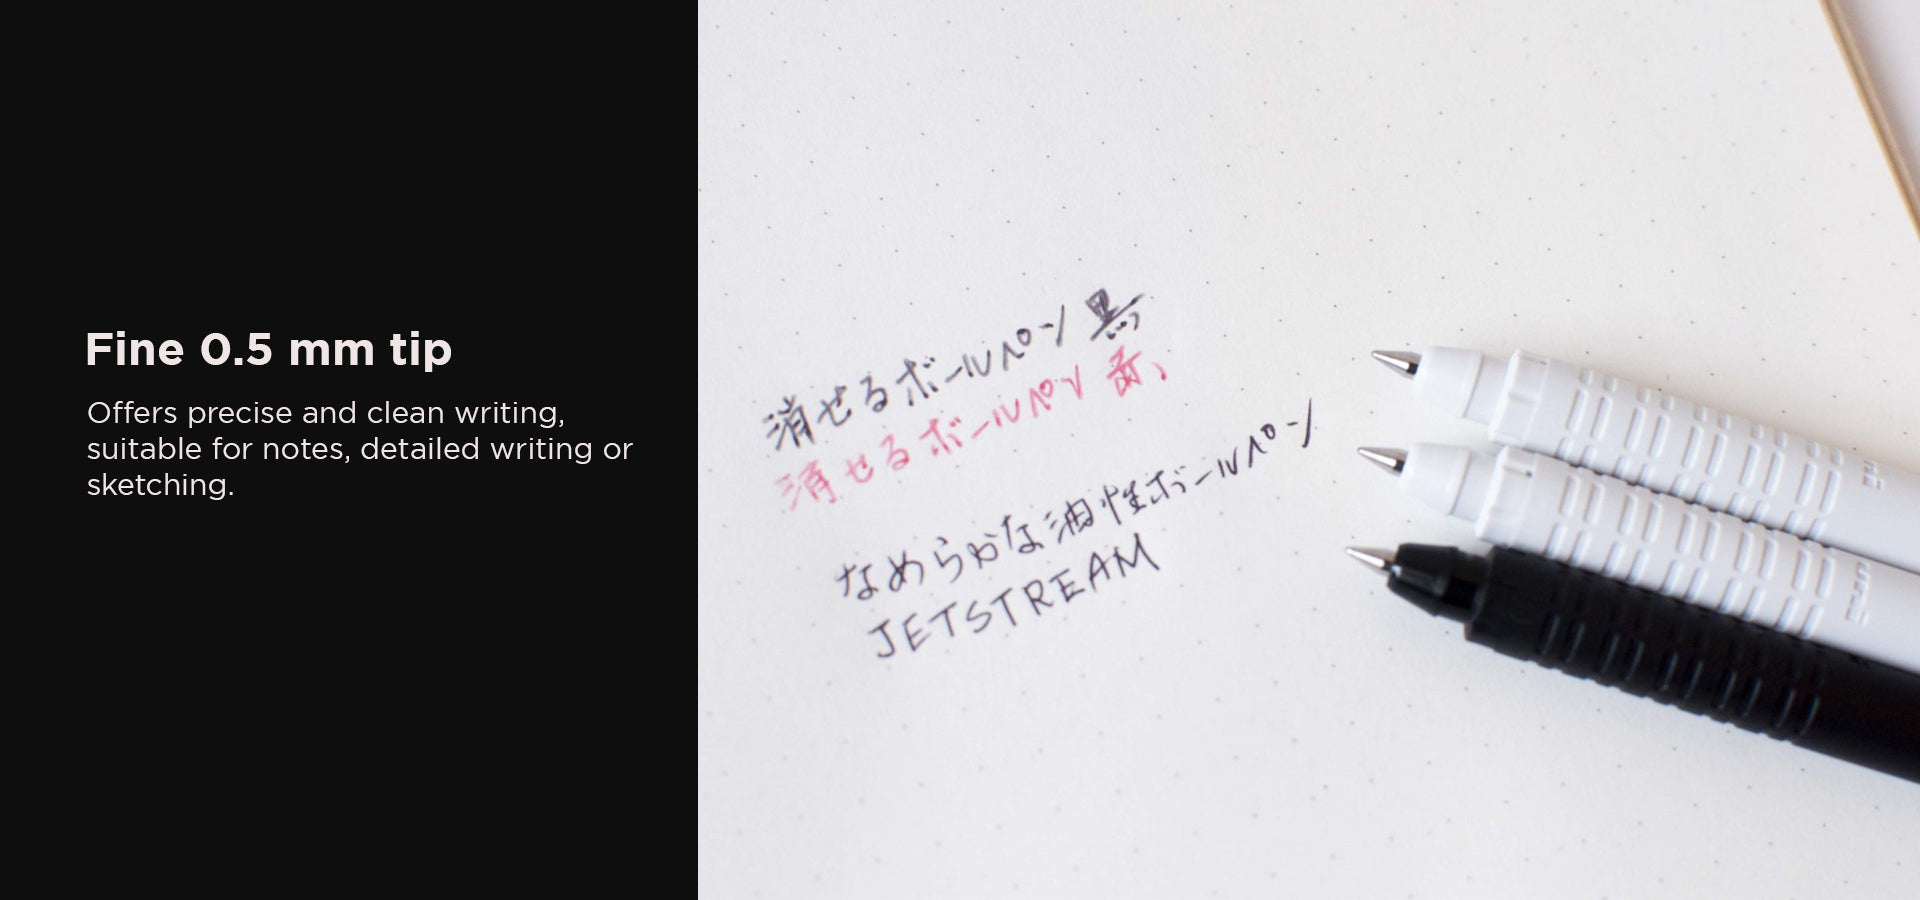 Fine 0.5 mm tip
Offers precise and clean writing,
suitable for notes, detailed writing or
sketching.
消せるボールペン 黒
消せるボールペン 赤、
なめらかな油性ボールペン
JETSTREAM